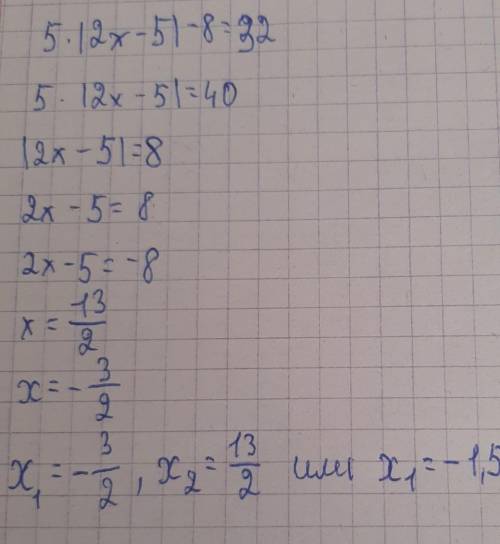 5·|2x-5|-8=32
5·|2x-5|=40
|2x-5|=8
2x-5=8
2x-5=-8
x=13/2
x=-3/2
x₁=-3/2, x₂=13/2 или x₁=-1,5